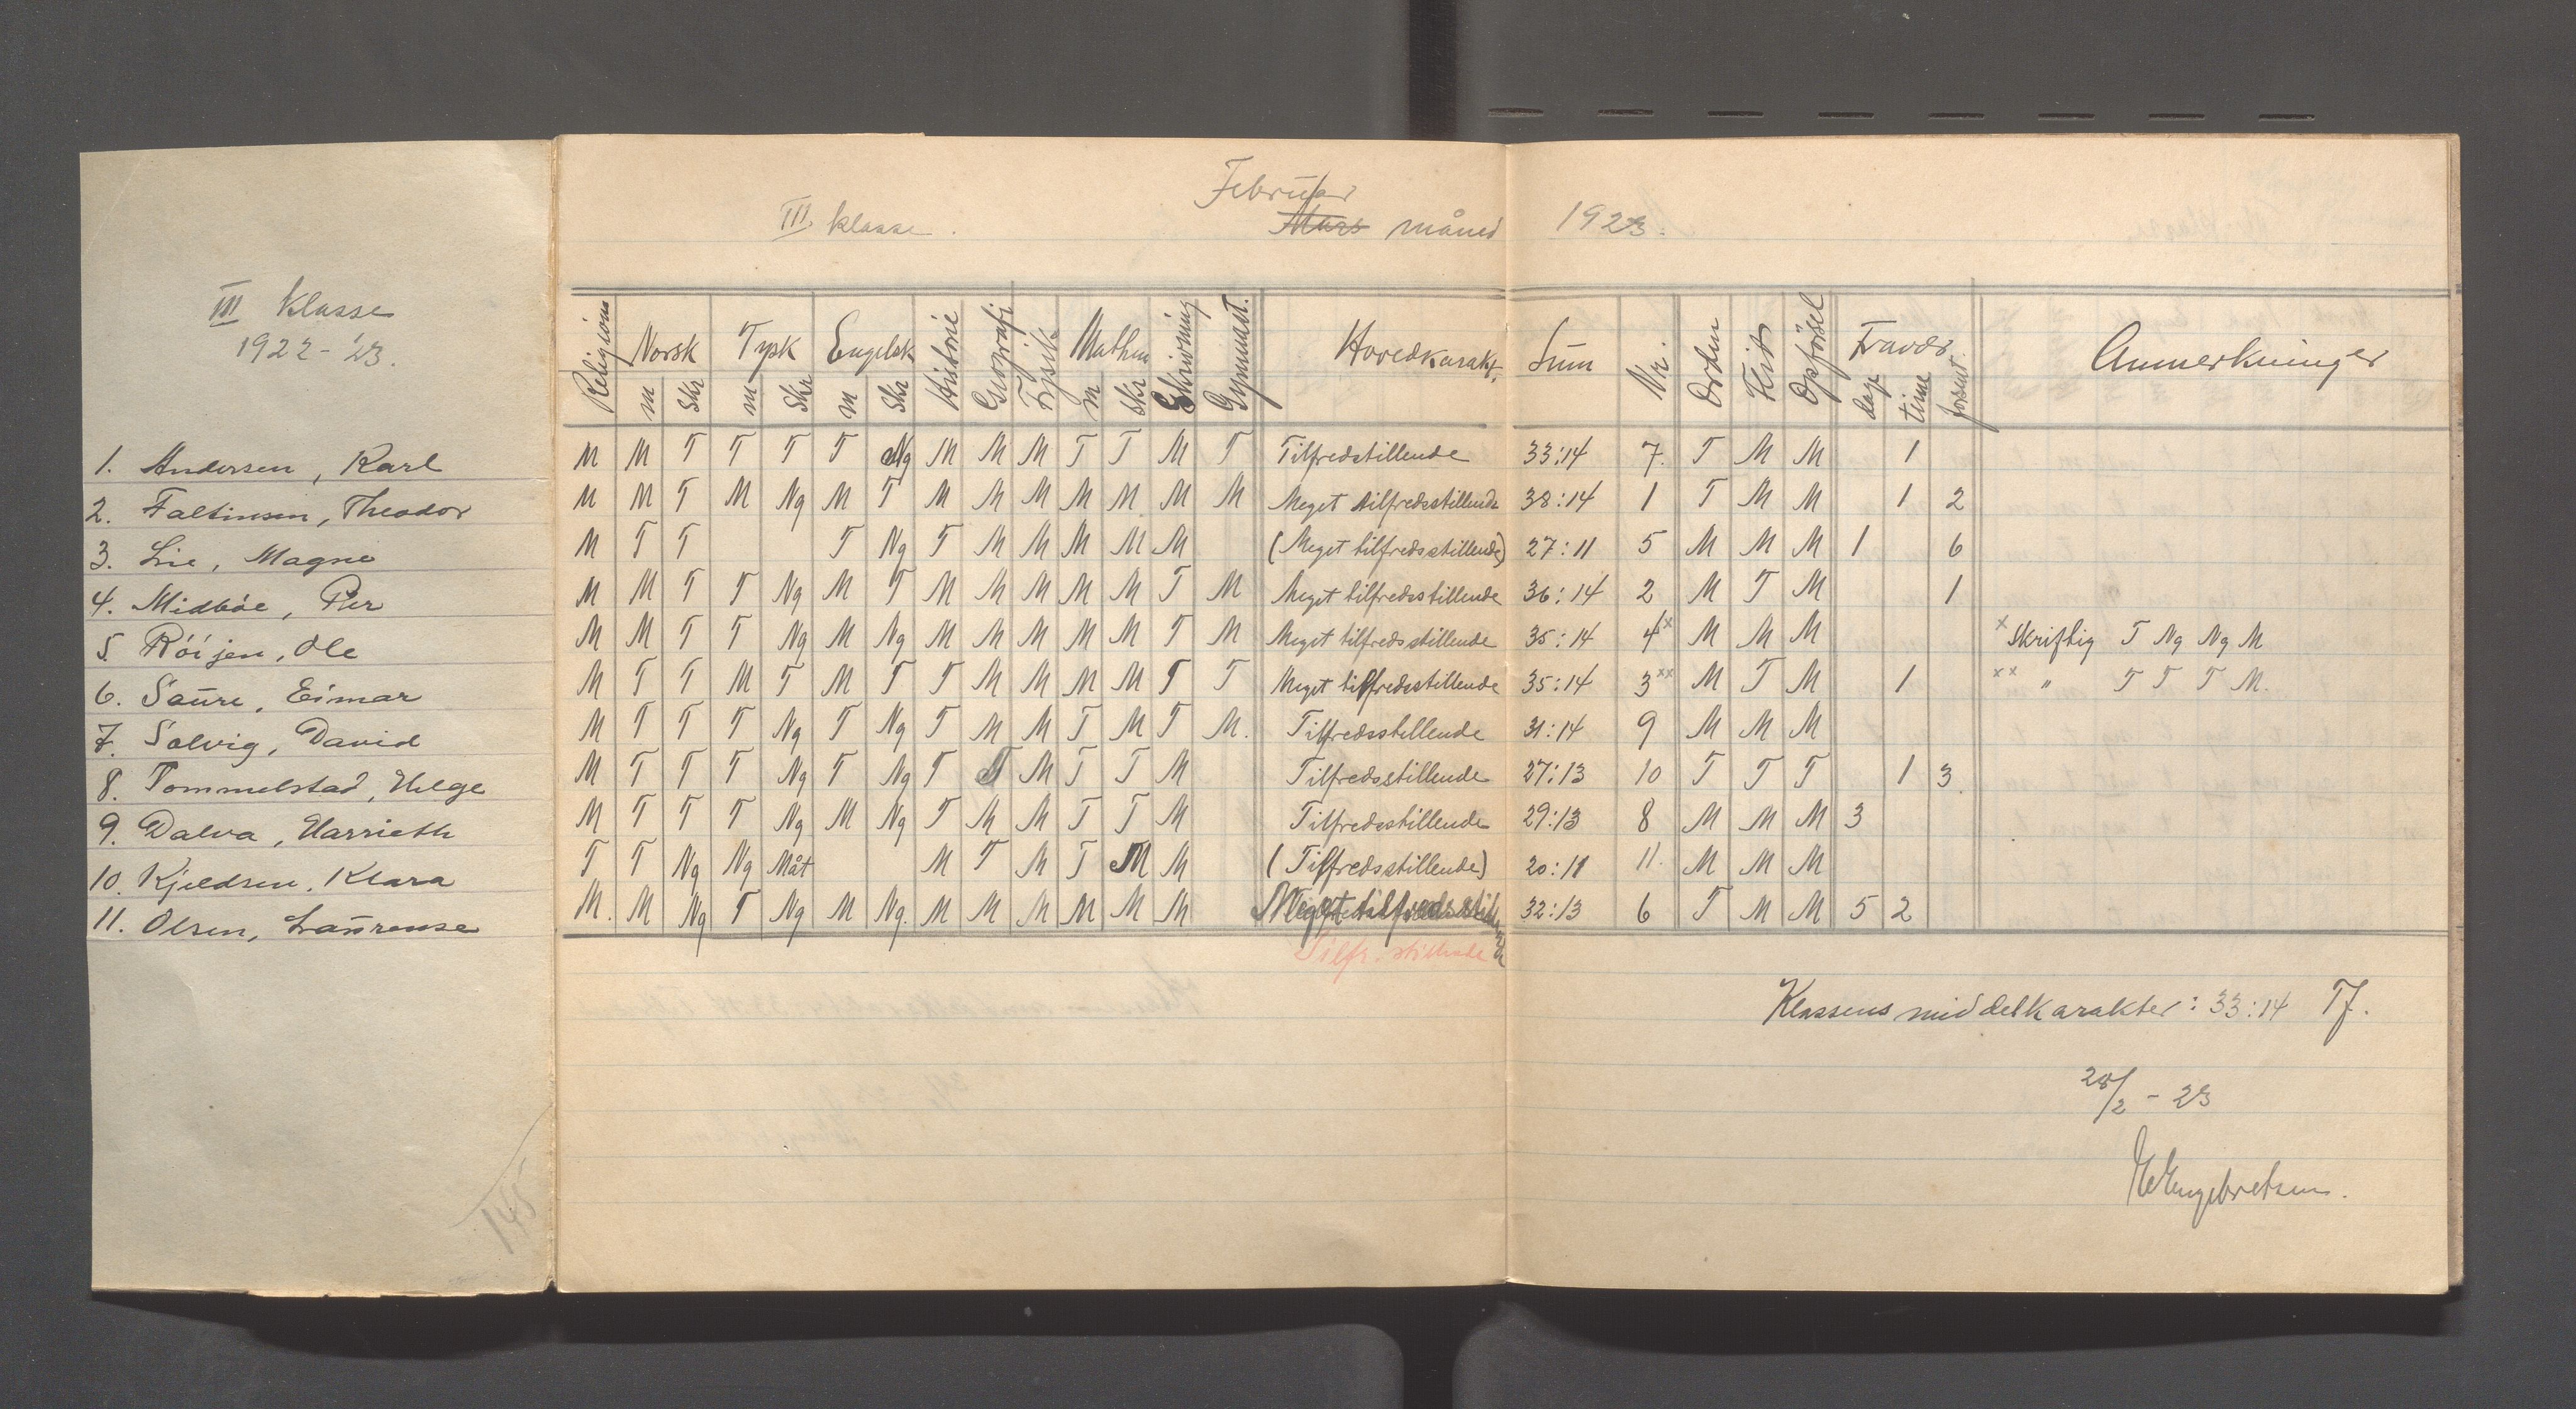 III klasse
1922-'23.
1. Andersen, Karl
2. Faltinsen, Theodor
3. Lie, Magne
4. Midbøe, Per
5. Röijen, Ole
6. Saure, Eimar
7. Solvig, David
8. Tommelstad, Helge
9. Dalva, Harrieth
10. Kjeldsen, Klara
11. Olsen, Laurense
145
Februar
III klasse. Mars måned 1923.
Religion Norsk Tysk Engelsk Historie Geografi Fysik Mathem Skrivning Gymnast. Hovedkarakt. Sum Nr. Orden Flid Opførsel Fravær Anmerkninger
m skr m skr m skr m skr dage time forsent.
M M T T T T Ng M M M T T M T Tilfredstillende 33:14 7. T M M 1
M M T M Ng M T M M M M M M M Meget tilfredsstillende 38:14 1 T M M 1 2
M T T T Ng T M M M M M (Meget tilfredsstillende) 27:11 5 M M M 1 6
M M T T Ng M T M M M M M T M Meget tilfredsstillende 36:14 2 M T M 1
M M T T Ng M Ng M M M M M T M Meget tilfredsstillende 35:14 4x M M M x Skriftlig T Ng Ng M
M T T M T M T T M M M M T T Meget tilfredsstillende 35:14 3xx M T M 1 xx " T T T M.
M T T T Ng T Ng T M M T M T M. Tilfredsstillende 31:14 9 M M M
M T T T Ng T Ng T T M T T M Tilfredsstillende 27:13 10 T T T 1 3
M T T T Ng M Ng T M M T T M Tilfredsstillende 29:13 8 M M M 3
T T Ng Ng Måt M T M T M M (Tilfredsstillende) 20:11 11. M M M
M. M Ng T Ng M Ng. M M M M M M Meget tilfredsstillende 32:13 6 T M M 5 2
Tilfr. stillende
Klassens middelkarakter: 33:14 Tf.
28/2 - 23
EEngebretsen.